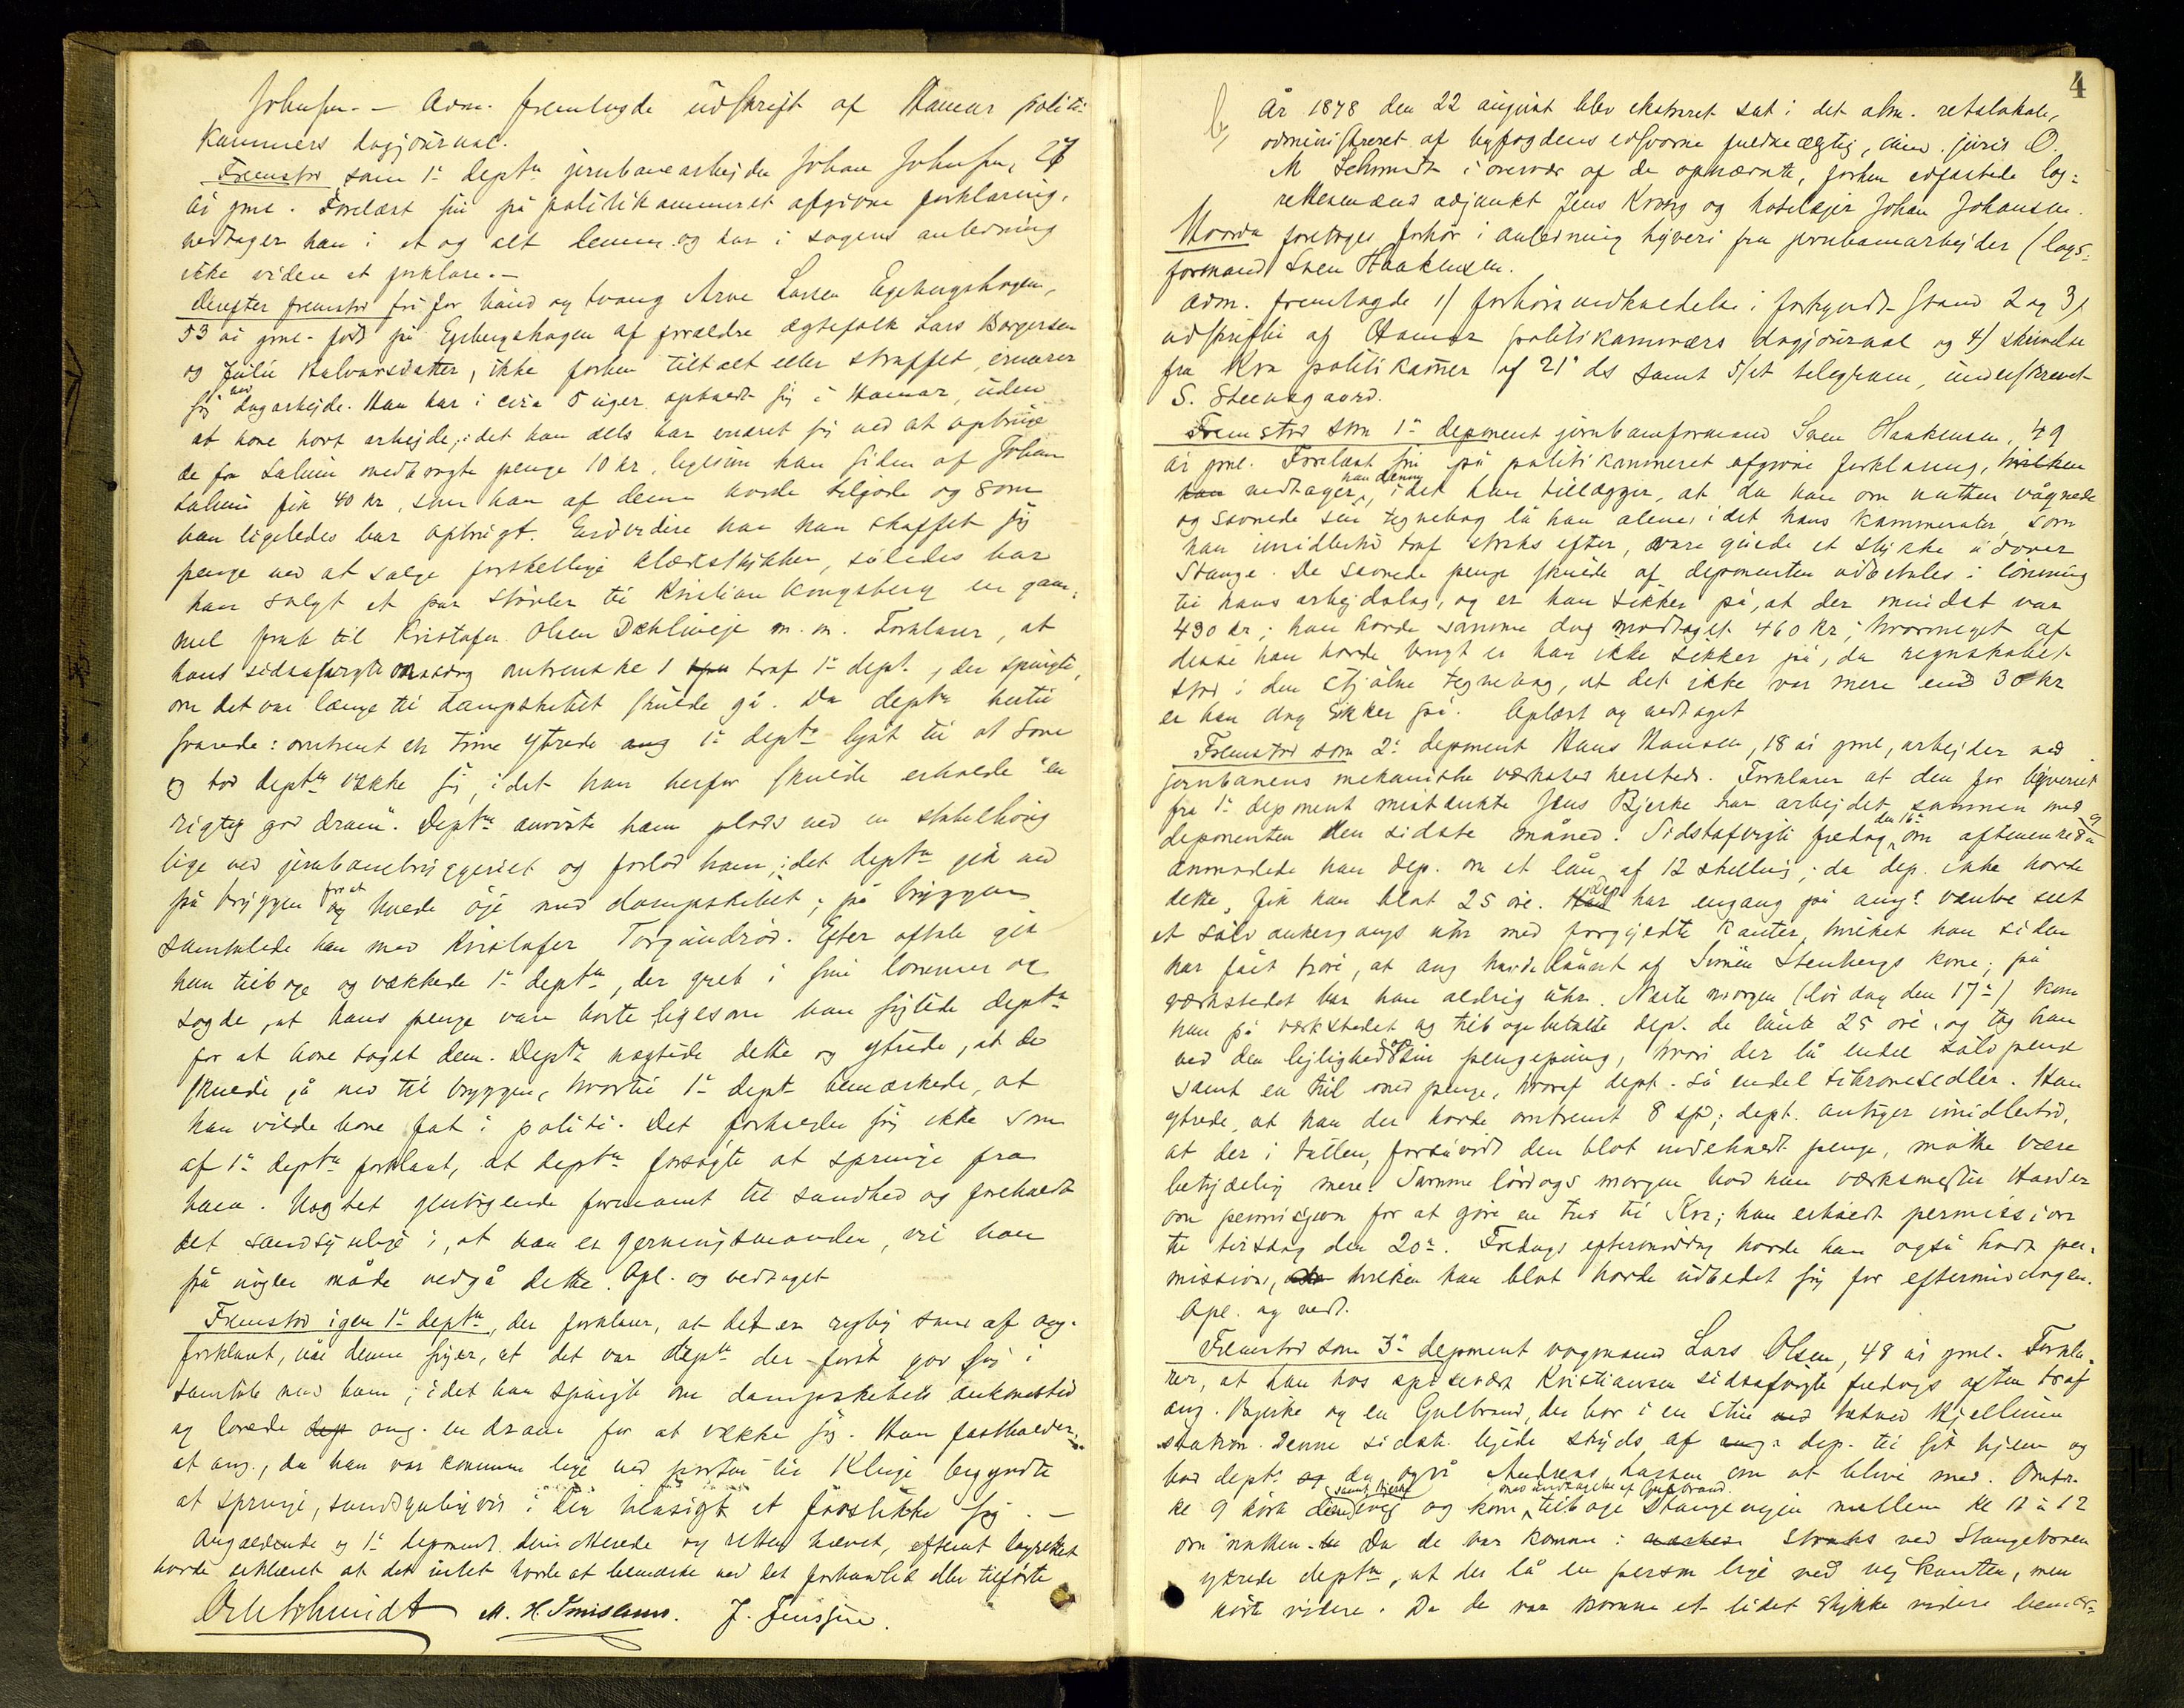 Johnsen. — Adm. fremlagde udskrift af Hamar politi-
kammers dagjournal.
Fremstod som 1ste deptn jernbanearbejder Johan Johnsen, 27
år gml. Forelæst sin på politikammeret afgivne forklaring,
vedtager han i et og alt denne og har i sagens anledning
ikke videre at forklare. —
Derefter fremstod fri for bånd og tvang Arne Larsen Egebergshagen,
53 år gml. født på Egebergshagen af forældre ægtefolk Lars Borgersen
og Julie Halvarsdatter, ikke forhen tiltalt eller straffet, ernærer
sig ved dagarbejde. Han har i circa 5 uger opholdt sig i Hamar, uden
at have havt arbejde, idet han dels har ernæret sig ved at opbruge
de fra medbragte penge 10 kr, ligesom han siden af Johan
fik 40 kr, som han af denne havde tilgode og som
han ligeledes har opbrugt. Endvidere har han skaffet sig
penge ved at sælge forskellige klædestykker, således har
han solgt et par støvler til Kristian Kongsberg en gam-
mel frak til Kristofer Olsen m. m. Forklarer, at
hans sidstafvigte onsdag omtrent kl 1 traf 1ste dept., der spurgte,
om det var længe til dampskibet skulde gå. Da deptn hertil
svarede: omtrent en time ytrede 1ste deptn lyst til at sove
og bad deptn vække sig, idet han herfor skulde erholde "en
rigtig god dram". Deptn anviste ham plads ved en stabelhoug
lige ved jernbanebryggeriet og forlod ham, idet deptn gik ned
på bryggen for at holde øje med dampskibet; på bryggen
samtalede han med Kristofer Torgundrød. Efter aftale gik
han tilbage og vækkede 1ste deptn, der greb i sine lommer og
sagde, at hans penge vare borte ligesom han sigtede deptn
for at have taget dem. Deptn nægtede dette og ytrede, at de
skulde gå ned til bryggen, hvortil 1ste deptn bemærkede, at
han vilde have fat i politi. Det forholder sig ikke som
af 1ste deptn forklaret, at deptn forsøgte at springe fra
ham. Uagtet gjentagende formanet til sandhed og foreholdt
det sandsynlige i, at han er gerningsmanden, vil han
på ingen måde vedgå dette. Opl. og vedtaget
Fremstod igen 1ste deptn, der forklarer, at det er rigtig som af ang.
forklaret, når denne siger, at det var deptn der først gav sig i
samtale med ham; idet han spurgte om dampskibets ankomsttid
og lovede ang. en dram for at vække sig. Han fastholder,
at ang., da han var kommen lige ved porten til Kluge begyndte
at springe, sandsynligvis i den hensigt at forstikke sig. —
Angældende og 1ste deponent dimitterede og retten hævet, efterat lagretten
havde erklæret at det intet havde at bemærke ved det forhandlede eller tilførte
O M Schmidt   J. Jenssen.
4
b, År 1878 den 22 august blev ekstraret sat i det alm. retslokale,
administreret af byfogdens edsvorne fuldmægtig, cand. juris O.
M Schmidt i overvær af de opnævnte, forhen edfæstede lag-
rettesmænd adjunkt Jens Kraag og hotelejer Johan Johansen.
Hvorda foretoges forhør i anledning tyveri fra jernbanearbejder (lags-
formand) Sven Haakensen.
Adm. fremlagde 1) forhørsmeddelelse i forkyndt stand 2 og 3)
udskrifter af Hamar politikammers dagjournal og 4) skrivelse
fra Kra politikammer af 21de ds samt 5) et telegram, underskrevet
S. Steensgaard.
Fremstod som 1ste deponent jernbaneformand Sven Haakensen, 49
år gml. Forelæst sin på politikammeret afgivne forklaring, hvilken
han vedtager han denne, idet han tillægger, at da han om natten vågnede
og savnede sin tegnebog lå han alene, idet hans kammerater, som
han imidlertid traf straks efter, vare gåede et stykke udover
Stange. De savnede penge skulde af deponenten udbetales i lønning
til hans arbejdslag, og er han sikker på, at der mindst var
430 kr; han havde samme dag modtaget 460 kr; hvormeget af
disse han havde brugt er han ikke sikker på, da regnskabet
stod i den stjålne tegnebog, at det ikke var mere end 30 kr
er han dog sikker på. Oplæst og vedtaget
Fremstod som 2de deponent Hans Hansen, 18 år gml, arbejder ved
jernbanens mekaniske værksted hersteds. Forklarer at den for tyveriet
fra 1ste deponent mistænkte Jens Bjerke har arbejdet sammen med
deponenten den sidste måned. Sidstafvigte fredag den 16de om aftenen
anmodede han dep. om et lån af 12 skelling; da dep. ikke havde
dette, fik han blot 25 øre. Dep. har engang på ang.s væske seet
et sølv ankergangs uhr med forgyldte kanter, hvilket han siden
har fået høre, at ang havde lånt af Simen Stenbergs kone; på
værkstedet bar han aldrig uhr. Næste morgen (lørdag den 17de) kom
han på værkstedet og tilbagebetalte dep. de lånte 25 øre, og tog han
ved den lejlighed op sin pengepung, hvori der lå endel sølvpenge
samt en tul med penge, hvoraf dept. så endel tikronesedler. Han
ytrede, at han der havde omtrent 8 spd; dept. antager imidlertid,
at der i tullen, forsåvidt den blot indeholdt penge, måtte være
betydelig mere. Samme lørdags morgen bad han værksmester Harder
om permission for at gøre en tur til Kra; han erholdt permission
til tirsdag den 20de. Fredags eftermiddag havde han også havt per-
mission, hvilken han blot havde udbedet sig for eftermiddagen.
Opl. og vedt.
Fremstod som 3de deponent vognmand Lars Olsen, 48 år gml. Forkla-
rer, at han hos spisevært Kristiansen sidstafvigte fredags aften traf
ang. Bjerke og en Gulbrand, der bor i en stue ved Kjellerun
station. Denne sidste lejede skyds af dep. til sit hjem og
bad dept. da også Andreas Larsen om at blive med. Omtr.
kl 9 kørte samt Bjerke og kom med undtagelse af Gulbrand tilbage Stangevejen mellem kl 11 à 12
om natten. Da de var komne straks ved Stangebroen
ytrede deptn, at der lå en person lige ved vejkanten, men
kørte videre. Da de var komne et lidet stykke videre bemær-